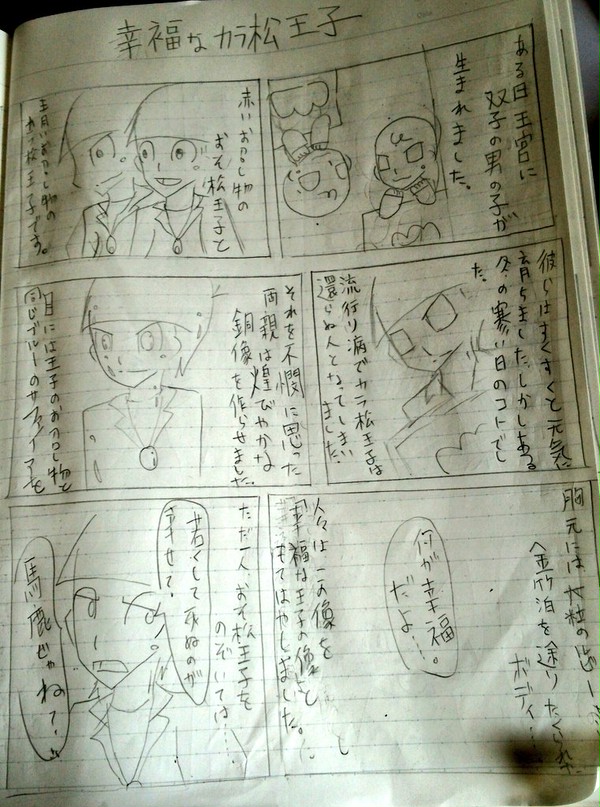 幸福なカラ松王子
ある日王宮に
双子の男の子が
生まれました。
赤いおめし物の
おそ松王子と
青いおめし物の
カラ松王子です。
彼らはすくすくと元気に
育ちましたしかしある
冬の寒い日のコトでし
た。
流行り病でカラ松王子は
還らぬ人となってしまい
ました。
それを不憫に思った
両親は煌びやかな
銅像を作らせました
目には王子のおめし物と
同じブルーのサファイアを
胸元には大粒のルビー
金箔を塗りたくられた
ボディ…
何が幸福
だよ…。
人々はこの像を
「幸福な王子の像」と
もてはやしました。
ただ一人、おそ松王子を
のぞいては……
若くして死ぬのが
幸せ?
馬鹿じゃねーの